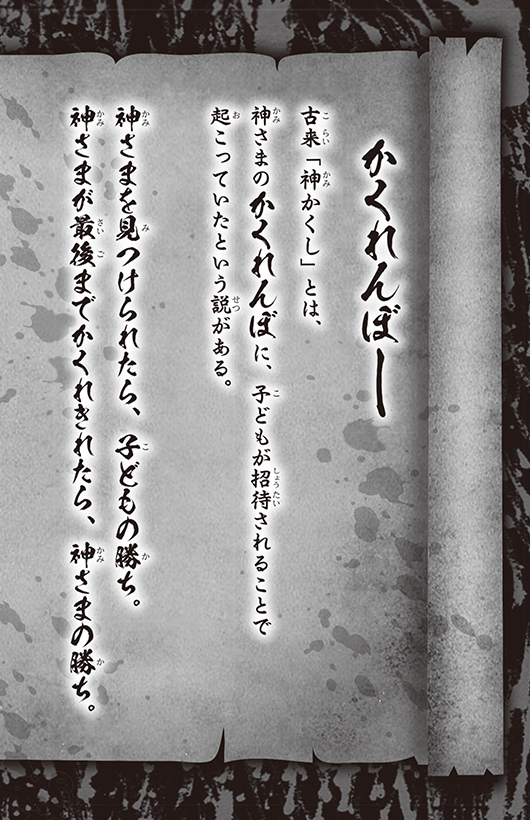 かくれんぼー
古来「神かくし」とは、
神さまのかくれんぼに、子どもが招待されることで
起こっていたという説がある。
神さまを見つけられたら、子どもの勝ち。
神さまが最後までかくれきれたら、神さまの勝ち。